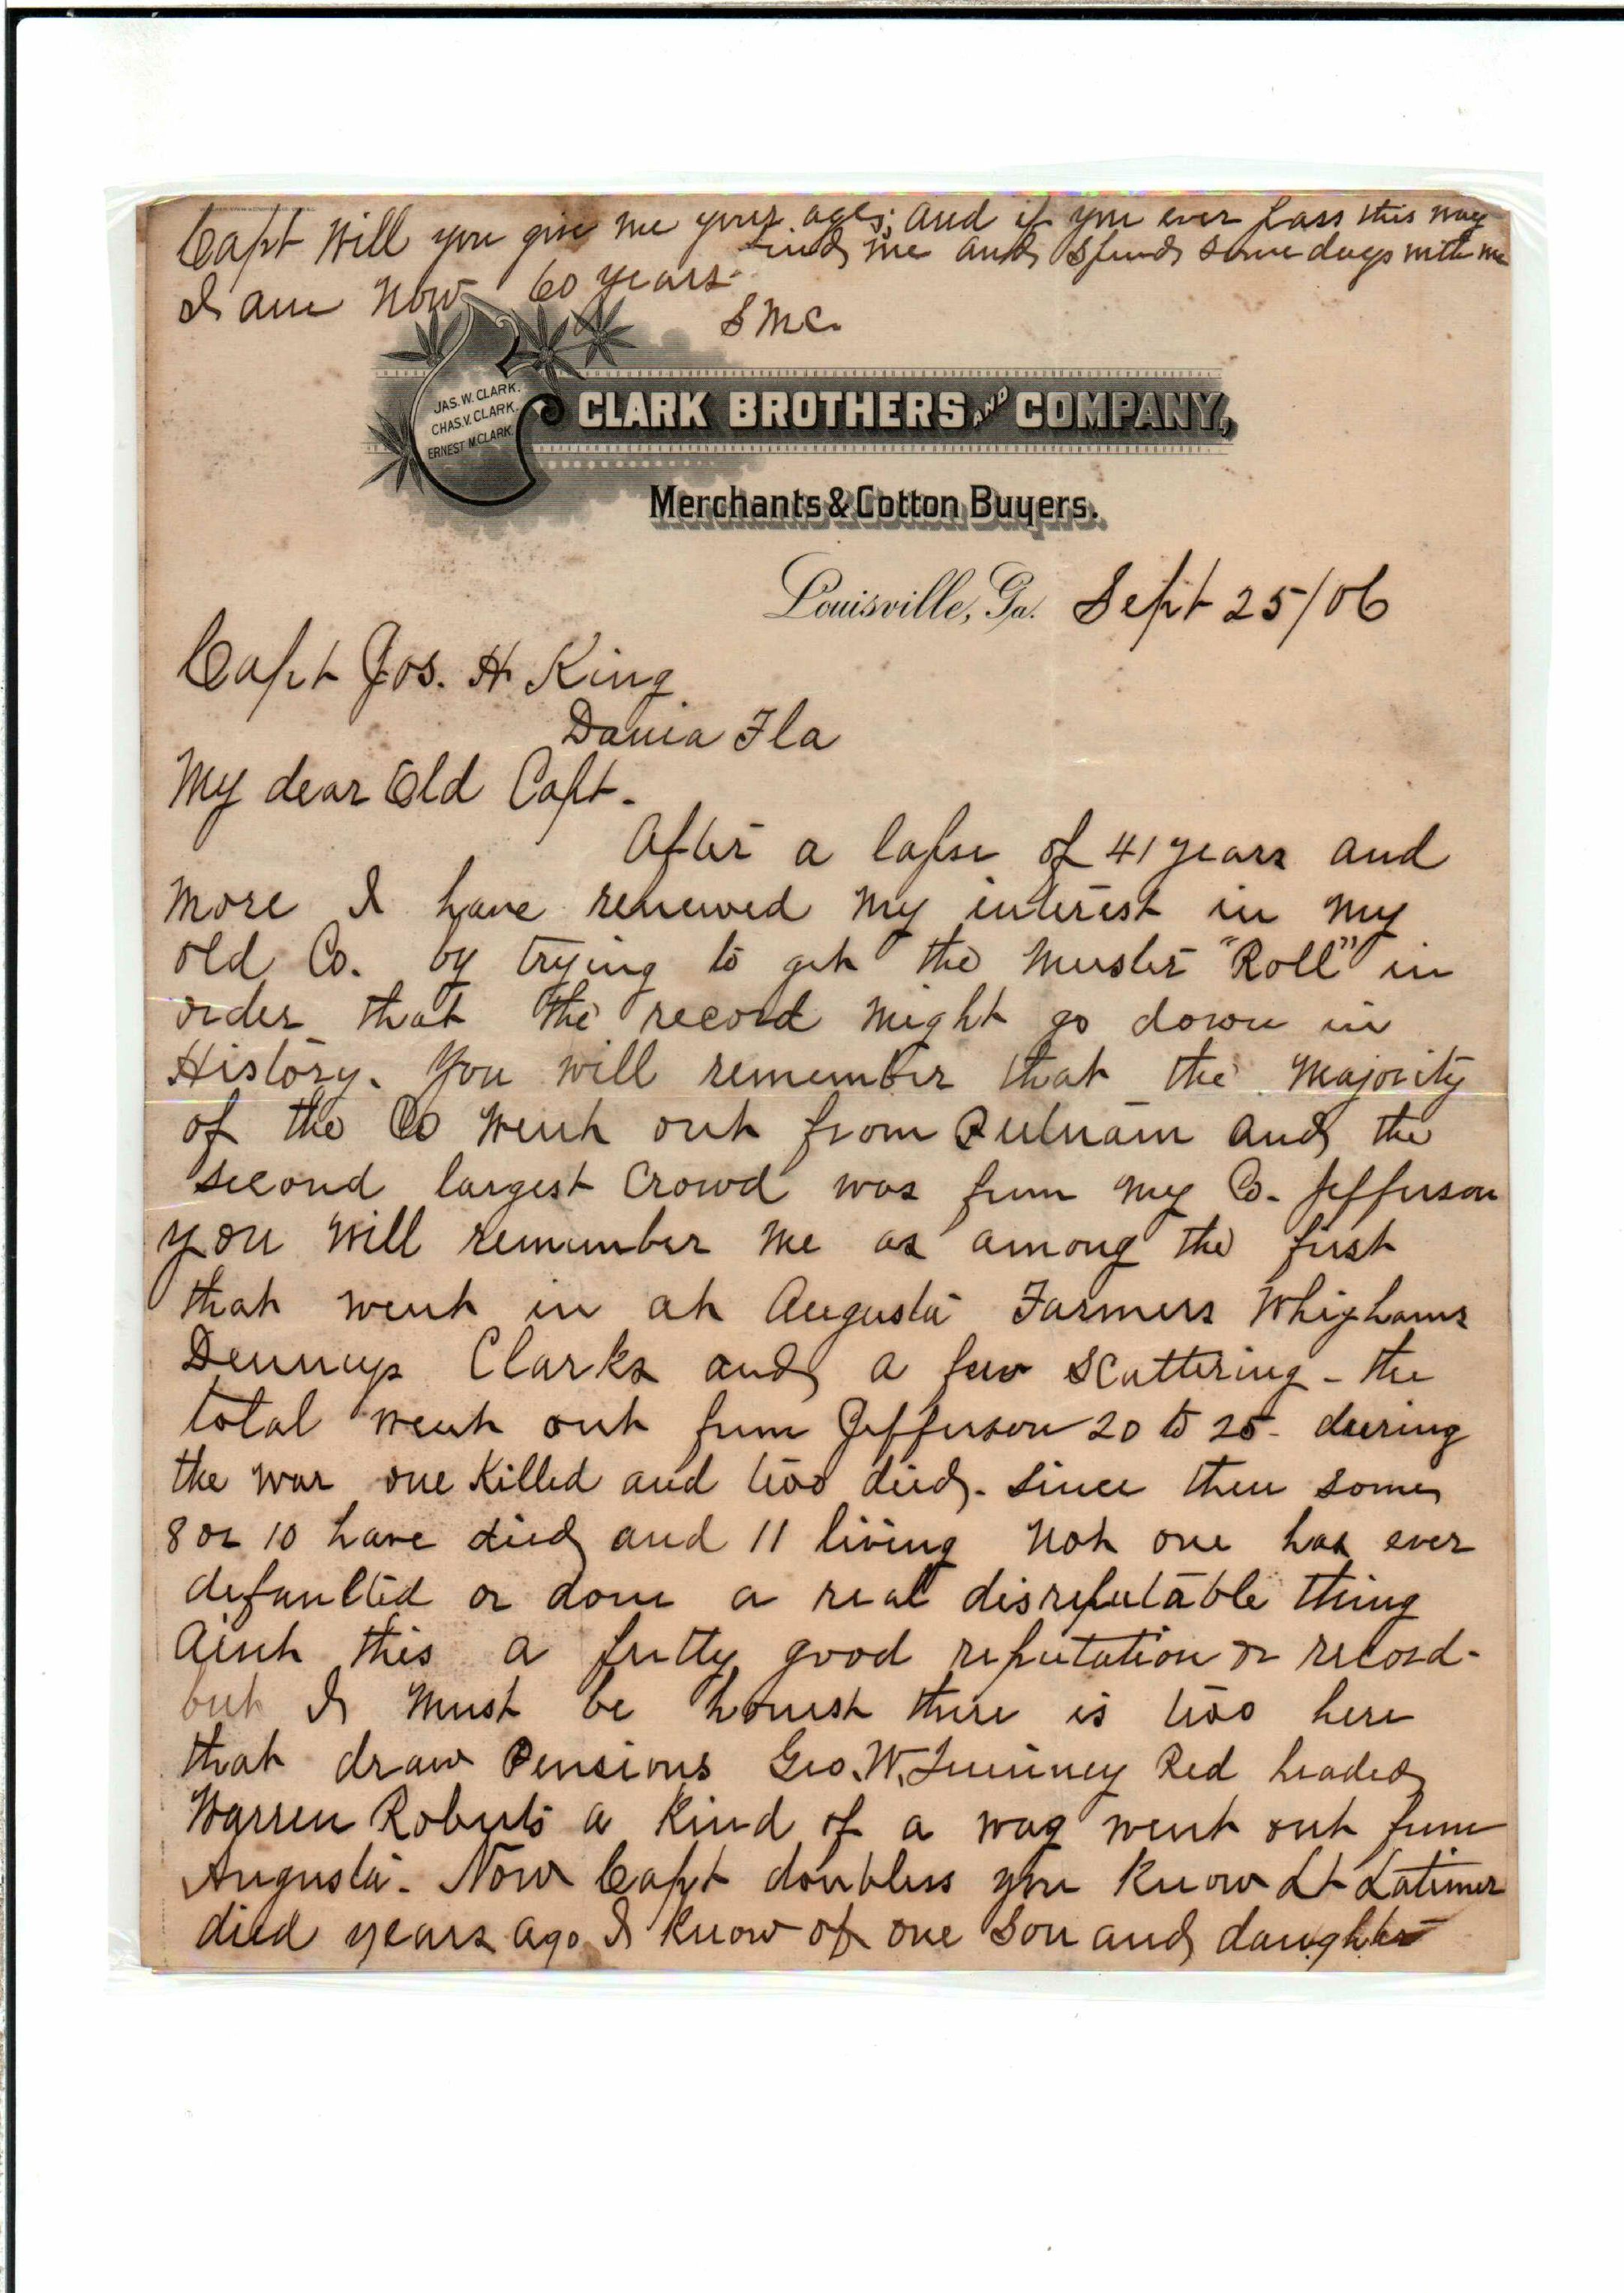 Capt Will you give me your age; and if you ever pass this way
find me and spend some days with me
I am now 60 years.
S M C.
JAS. W. CLARK.
CHAS. V. CLARK.
ERNEST M. CLARK.
CLARK BROTHERS AND COMPANY,
Merchants & Cotton Buyers.
Louisville, Ga. Sept 25/06
Capt Jos. H King
Dania Fla
My dear Old Capt.
After a lapse of 41 years and
more I have renewed my interest in my
old Co. by trying to get the Muster "Roll" in
order that the record might go down in
History. You will remember that the majority
of the Co went out from Putnam and the
second largest Crowd was from my Co. Jefferson
you will remember me as among the first
that went in at Augusta Farmers Whighams
Dennys Clarks and a few scattering - the
total went out from Jefferson 20 to 25 - during
the war one Killed and two died. Since then some
8 or 10 have died and 11 living not one has ever
defaulted or done a real disreputable thing
Aint this a pretty good reputation or record -
but I must be honest there is two here
that draw Pensions Geo. W. Red headed
Warren Roberts a Kind of a wag went out from
Augusta. Now Capt doubtless you Know Lt Latimer
died years ago I Know of one Son and daughter